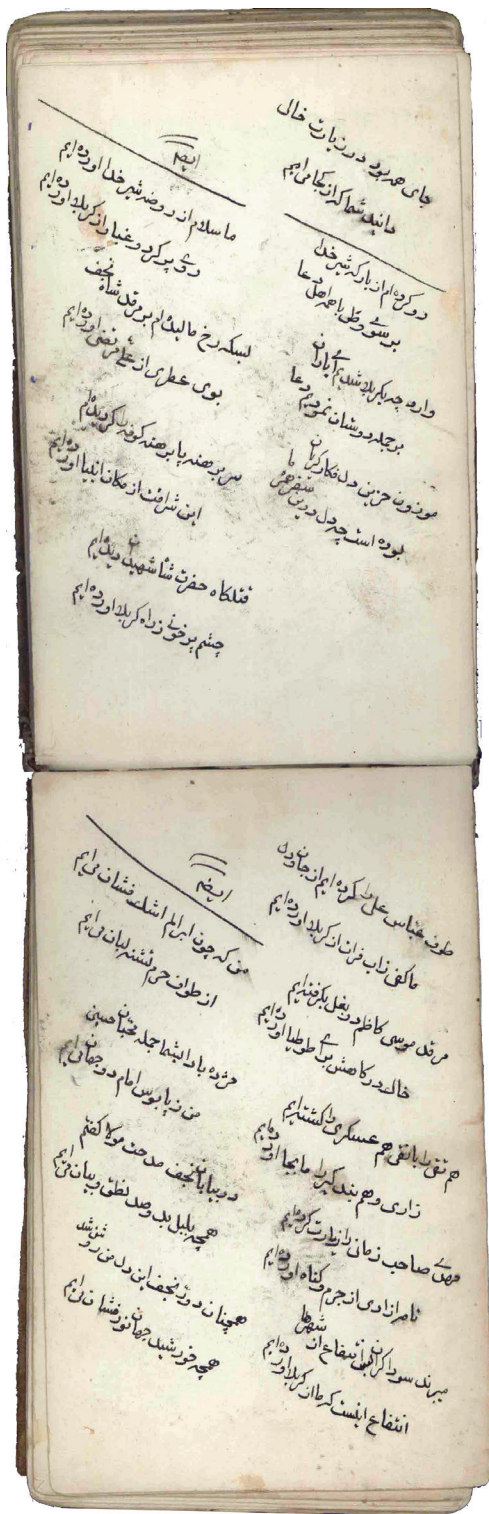 جای همه بود در زیارت خالی
دانید شما که از کجا می‌ایم
رو کرده‌ام از بارکه شیر خدا
بر سوی وطن با همه اهل دعا
وارد چه بکربلا شدیم ای یاران
بر جمله دوشان نمودیم دعا
موزون حزین دل فکار کریان
بوده است چه دل درین سفر همره ما
ایضا
ما سلام از روضه شیر خدا اورده‌ایم
روی پر کرد و غبار از کربلا اورده‌ایم
بسکه رخ مالیده‌ام بر مرقد شاه نجف
بوی عطری از علی مرتضی اورده‌ایم
سر برهنه پا برهنه کوفه را کردیده‌ام
این شرافت از مکان انبیا اورده‌ایم
قتلکاه حضرت شاه شهیدان دیده‌ایم
چشم پر خونی ز راه کربلا اورده‌ایم
طوف عباس علی را کرده‌ایم از جان و دل
ما کفی زاب فرات از کربلا اورده‌ایم
مرقد موسی کاظم در بغل بکرفته‌ایم
خاک درکاهش برای طوطیا اورده‌ایم
هم تقی را با نقی هم عسکری را کشته‌ایم
زاری و هم بندکی را ما بجا اورده‌ایم
مهدی صاحب زمان را زیارت کرده‌ایم
نامه ازادی از جرم و کناه اورده‌ایم
میبرند سوداکران انتفاع از شهرها
انتفاع اینست که ما از کربلا اورده‌ایم
ایضا
من که چون ابر الم اشک فشان می‌ایم
از طواف حرم تشنه لبان می‌ایم
مژده بادا بشما جمله محبان حسین
من ز پابوس امام دو جهان می‌ایم
در بیابان نجف مدحت مولا کفتم
همچه بلبل بدو صد نطق و بیان می‌ایم
همچنان دور نجف این دل من روشن شد
همچه خورشید جهان نور فشان می‌ایم